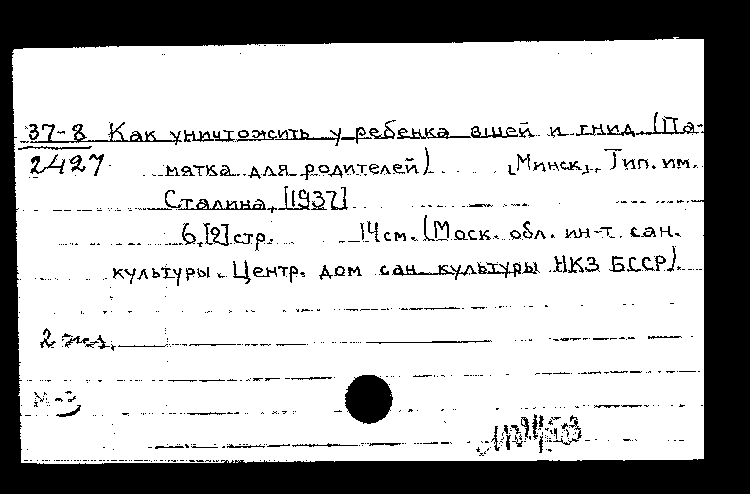 37-8 Как уничтожить у ребенка вшей и гнид. (Па-
2427 мятка для родителей) [Минск], Тип. им.
Сталина, [1937]
6,[2]стр. 14см. (Моск. обл. ин-т сан.
культуры. Центр. дом сан. культуры НКЗ БССР).
2 экз.